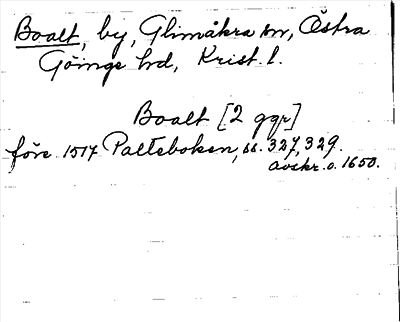 Boalt, by, Glimåkra sn, Östra
Göinge hd, Krist. l.
Boalt [2 ggr]
före 1517 Palteboken, ss. 327, 329.
avskr. o. 1650.